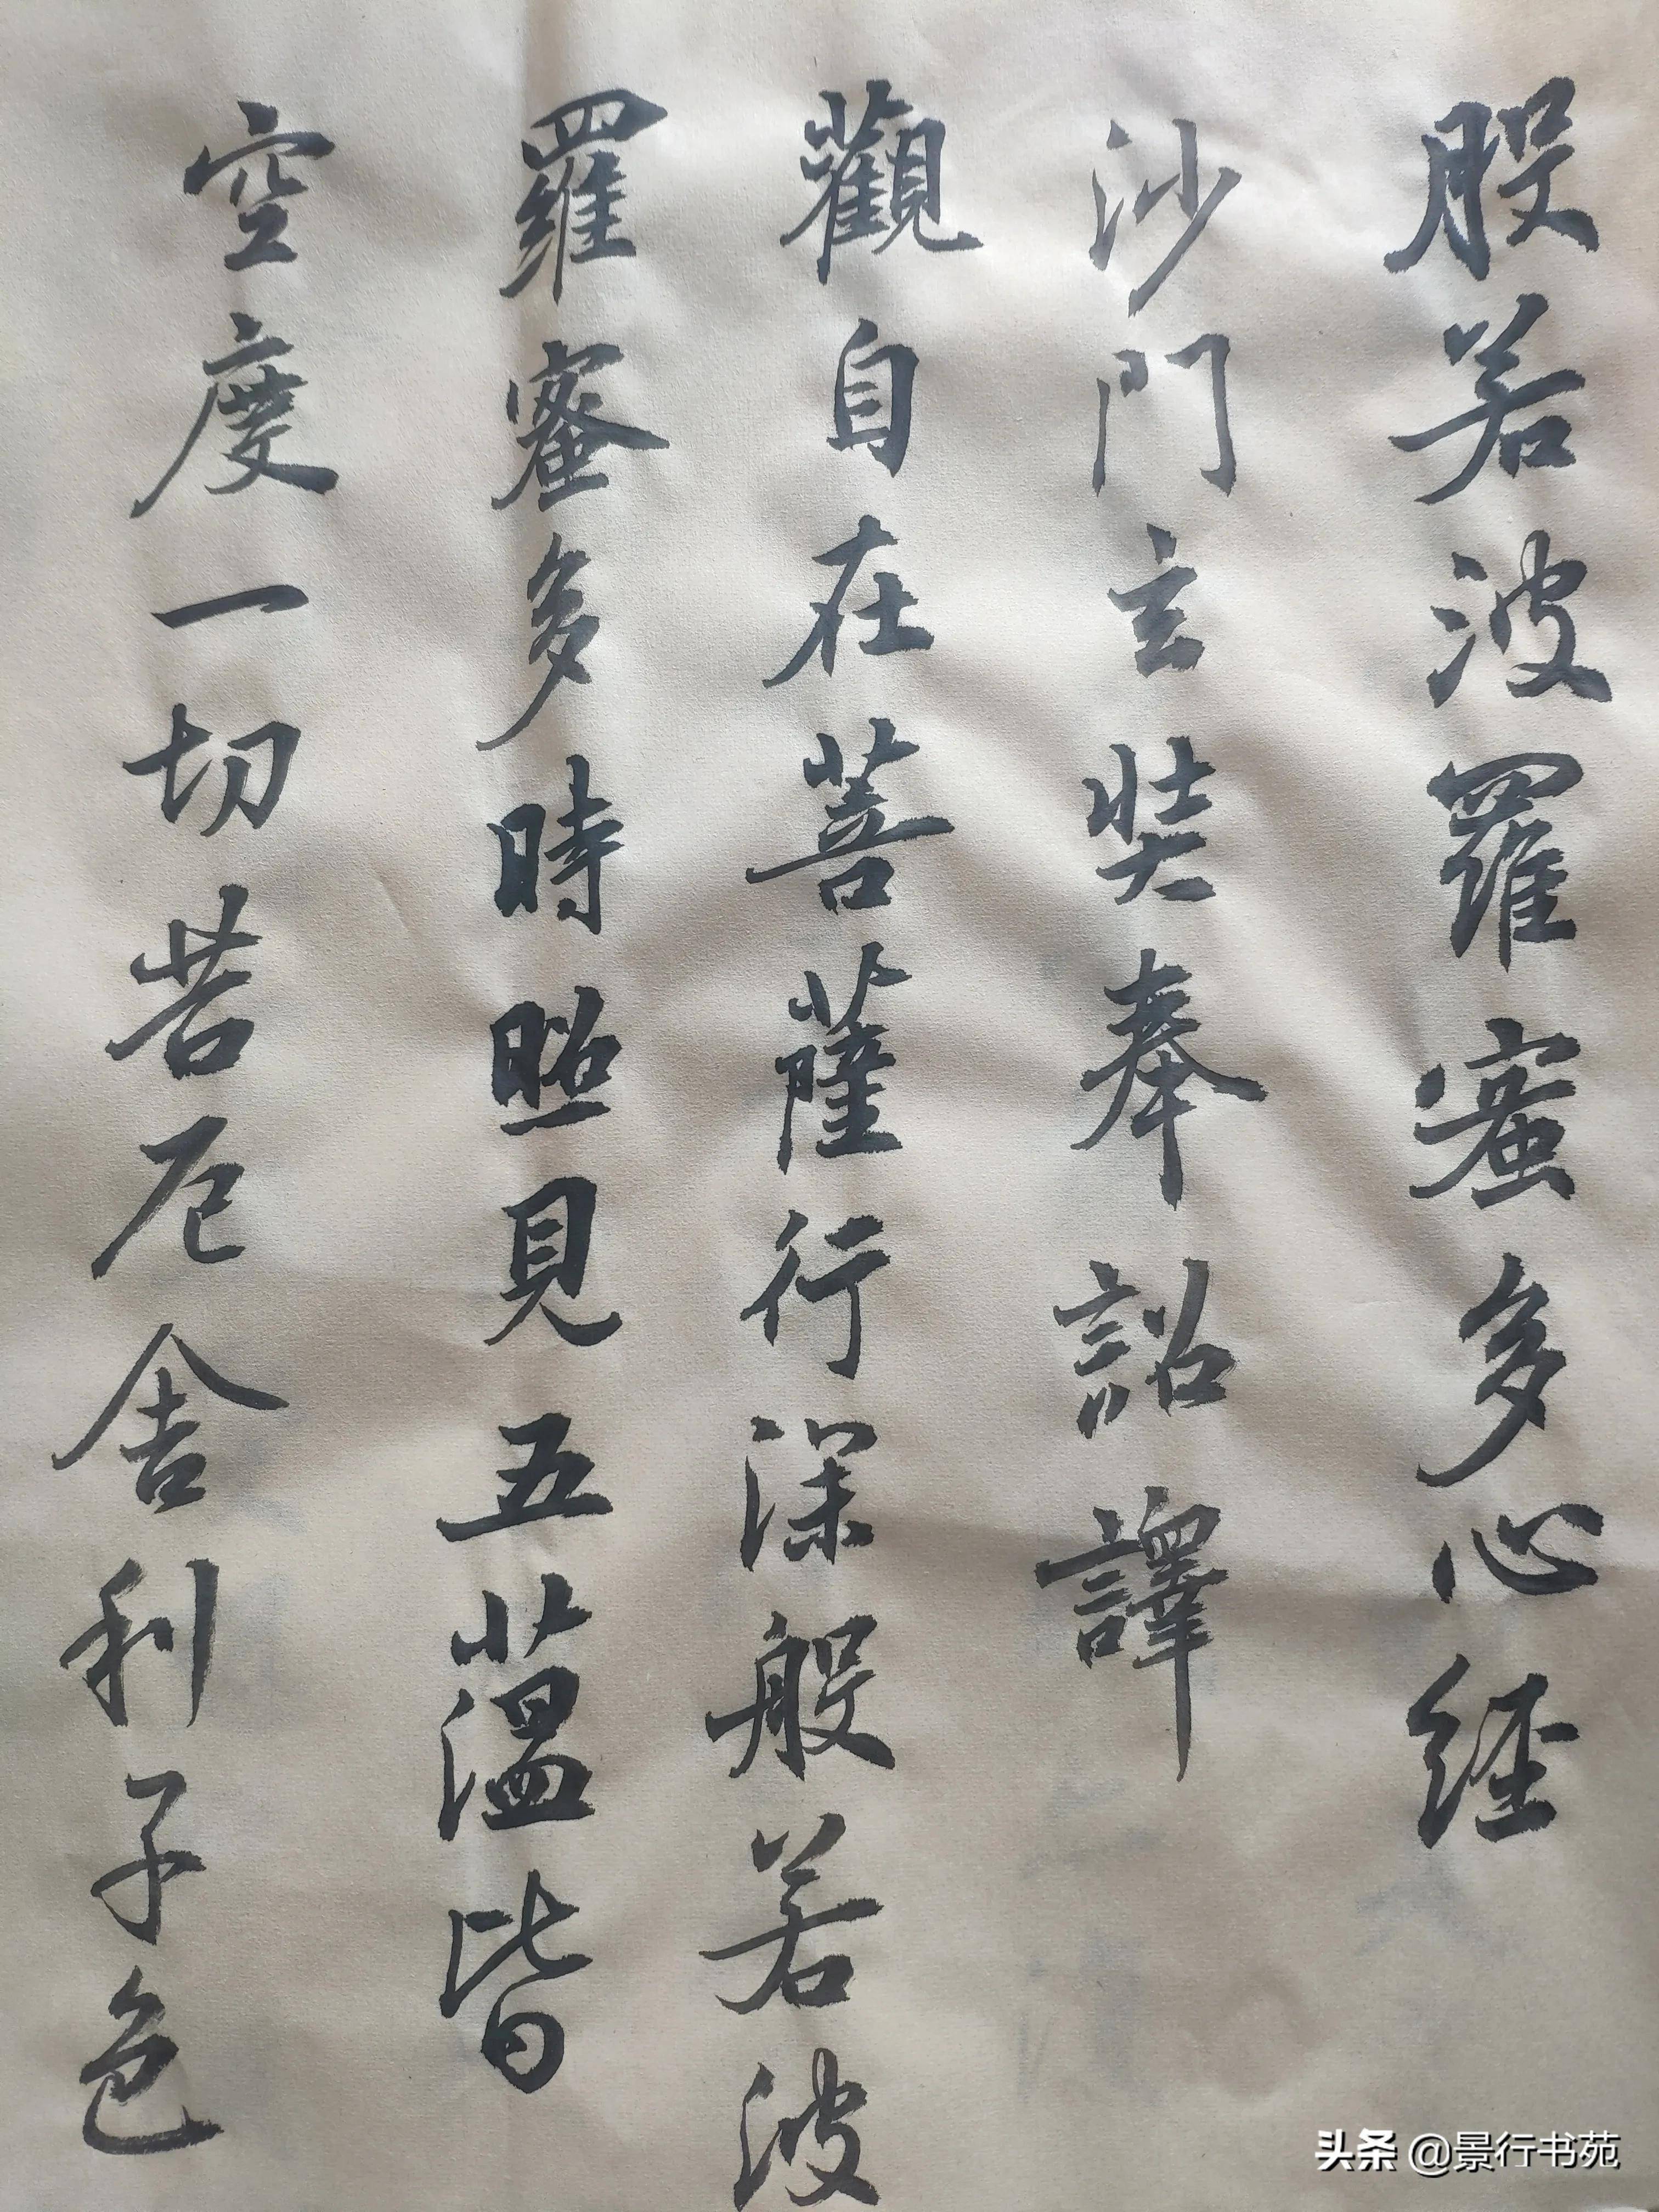 股若波羅蜜多心經
沙門玄奘奉詔譯
觀自在菩薩行深般若波
羅蜜多時照見五蕰皆
空度一切苦厄舍利子色
头条 @景行书苑